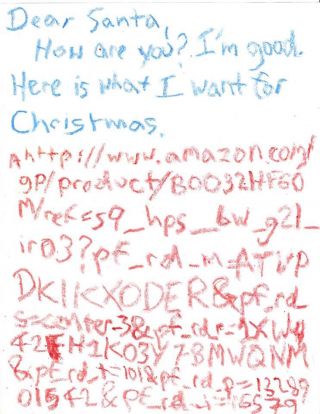 Dear Santa,
How are you? I'm good.
Here is what I want for
Christmas.
http://www.amazon.com/
gp/product/B0032HF60
M/ref=s9_hps_bw_g21_
ir03?pf_rd_m=ATVP
DKIKX0DER&pf_rd_
s=center-3&pf_rd_r=1XW4
42FH1K03Y78MWQNM
&pf_rd_t=101&pf_rd_p=13289
01542&pf_rd_i=16579